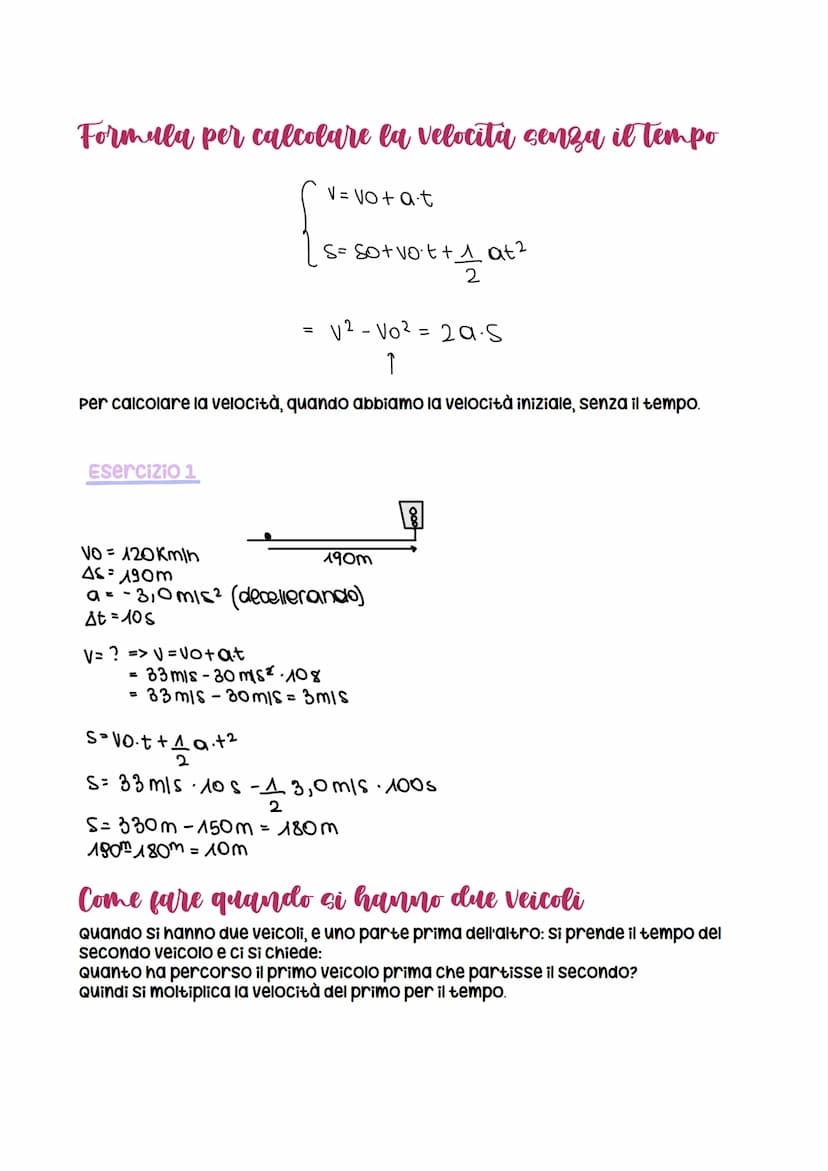 Formula per calcolare la velocità senza il tempo
v = v0 + a·t
s = s0 + v0·t + 1/2 at²
= v² - v0² = 2a·s
↑
Per calcolare la velocità, quando abbiamo la velocità iniziale, senza il tempo.
Esercizio 1
190m
v0 = 120Km/h
Δs = 190m
a = -3,0 m/s² (decellerando)
Δt = 10s
v = ? => v = v0 + at
= 33 m/s - 30 m/s² · 10s
= 33 m/s - 30 m/s = 3 m/s
s = v0·t + 1/2 a·t²
s = 33 m/s · 10 s - 1/2 3,0 m/s · 100s
s = 330m - 150m = 180m
190m - 180m = 10m
Come fare quando si hanno due veicoli
Quando si hanno due veicoli, e uno parte prima dell'altro: si prende il tempo del
secondo veicolo e ci si chiede:
Quanto ha percorso il primo veicolo prima che partisse il secondo?
Quindi si moltiplica la velocità del primo per il tempo.